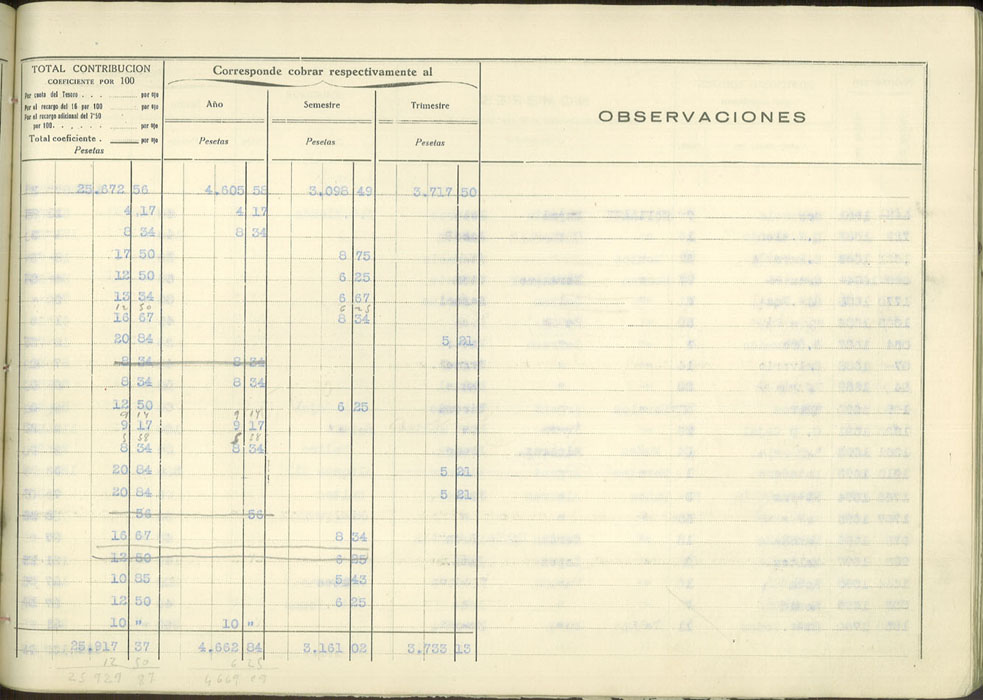 TOTAL CONTRIBUCION
COEFICIENTE POR 100
Por cuota del Tesoro . . . ........ por o/o
Por el recargo del 16 por 100 ........ por o/o
Por el recargo adicional del 7'50
por 100. . . . . . ........ por o/o
Total coeficiente . ........ por o/o
Pesetas
Corresponde cobrar respectivamente al
Año Semestre Trimestre
Pesetas Pesetas Pesetas
OBSERVACIONES
25.672 56 4.605 58 3.098 49 3.717 50
4 17 4 17
8 34 8 34
17 50 8 75
12 50 6 25
13 34 6 67
12 50 6 25
16 67 8 34
20 84 5 21
8 34 8 34
8 34 8 34
12 50 6 25
9 17 9 17
9 17 9 17
8 34 8 34
20 84 5 21
20 84 5 21
56 56
16 67 8 34
12 50 6 25
10 85 5 43
12 50 6 25
10 " 10 "
25.917 37 4.662 84 3.161 02 3.733 13
12 50 6 25
25 929 87